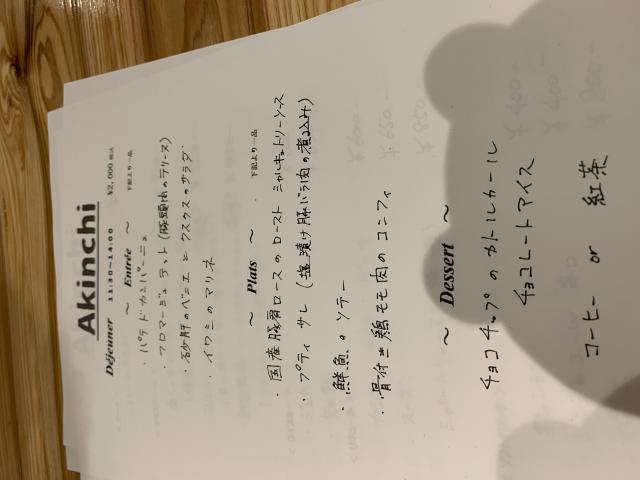 Akinchi
Déjeuner 11:30～14:00 ¥2,000 税込
～ Entrée ～ 下記より一品
・パテドカンパーニュ
・フロマージュ テット(豚頭肉のテリーヌ)
・砂肝のベニエ と クスクスのサラダ
・イワシのマリネ
～ Plats ～ 下記より一品
・国産豚肩ロースのロースト シャルキュトリーソース
・プティ サレ (塩漬け豚バラ肉の煮込み)
・鮮魚のソテー
・骨付き鶏モモ肉のコンフィ
～ Dessert ～
チョコチップのカトルカール
チョコレートアイス
コーヒー or 紅茶